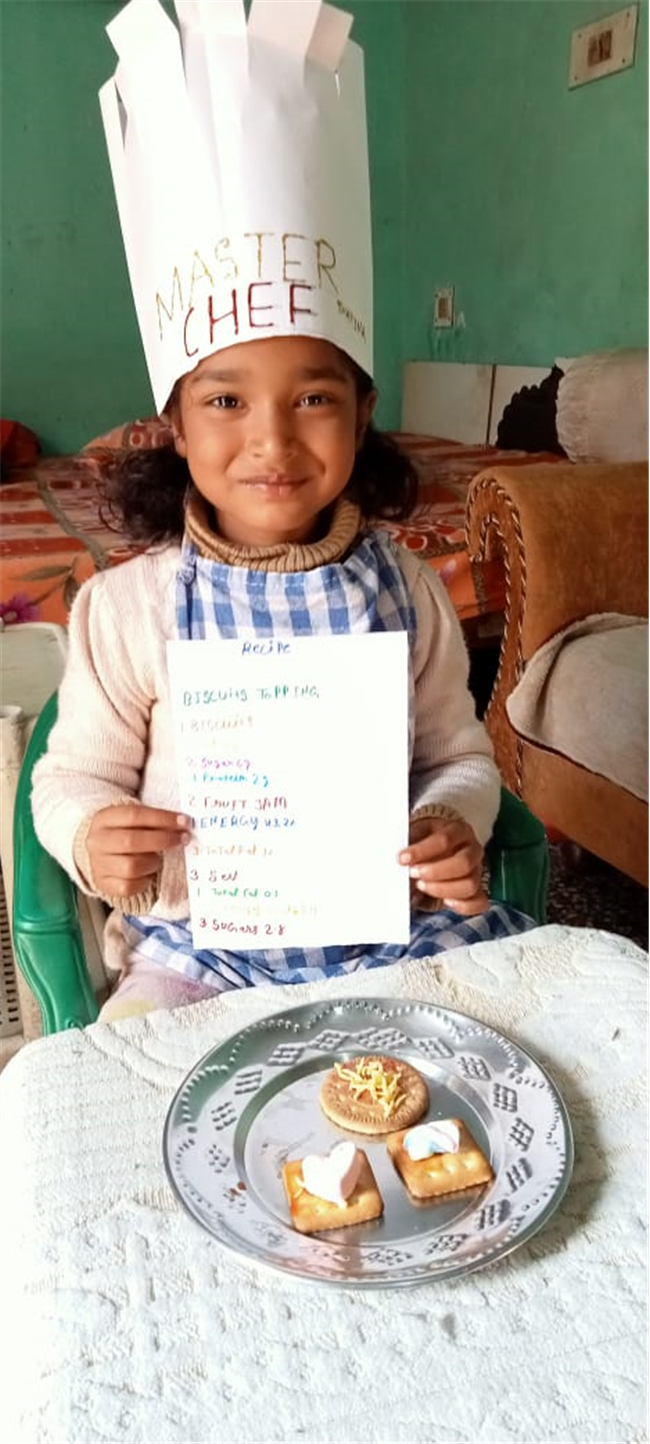 MASTER
CHEF
Recipe
BISCUITS TOPPING
1 BISCUITS
2 Sugar 6g
1 Protein 2g
2 FRUIT JAM
1 ENERGY
3 Total Fat
3 Sev
1 Total Fat 0.1
3 Sugars 2.8